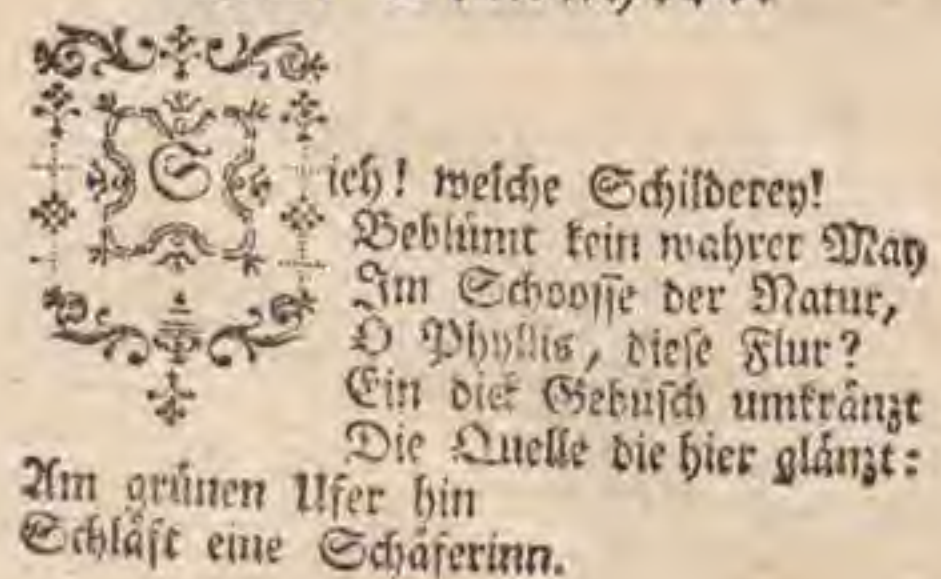 Sieh! welche Schilderey!
Beblümt kein wahrer May
Im Schoosse der Natur,
O Phyllis, diese Flur?
Ein dick Gebüsch umkränzt
Die Quelle die hier glänzt:
Am grünen Ufer hin
Schläft eine Schäferinn.